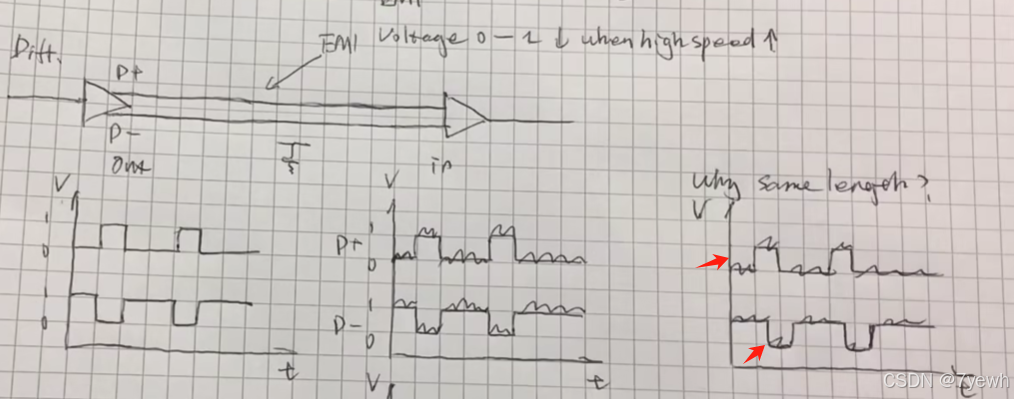 EMI
EMI Voltage 0-1 ↓ when high speed ↑
Diff.
D+
D-
Out
in
V
1
0
1
0
t
V
D+
1
0
D-
1
0
t
V
Why same length?
V
t
CSDN @7yewh